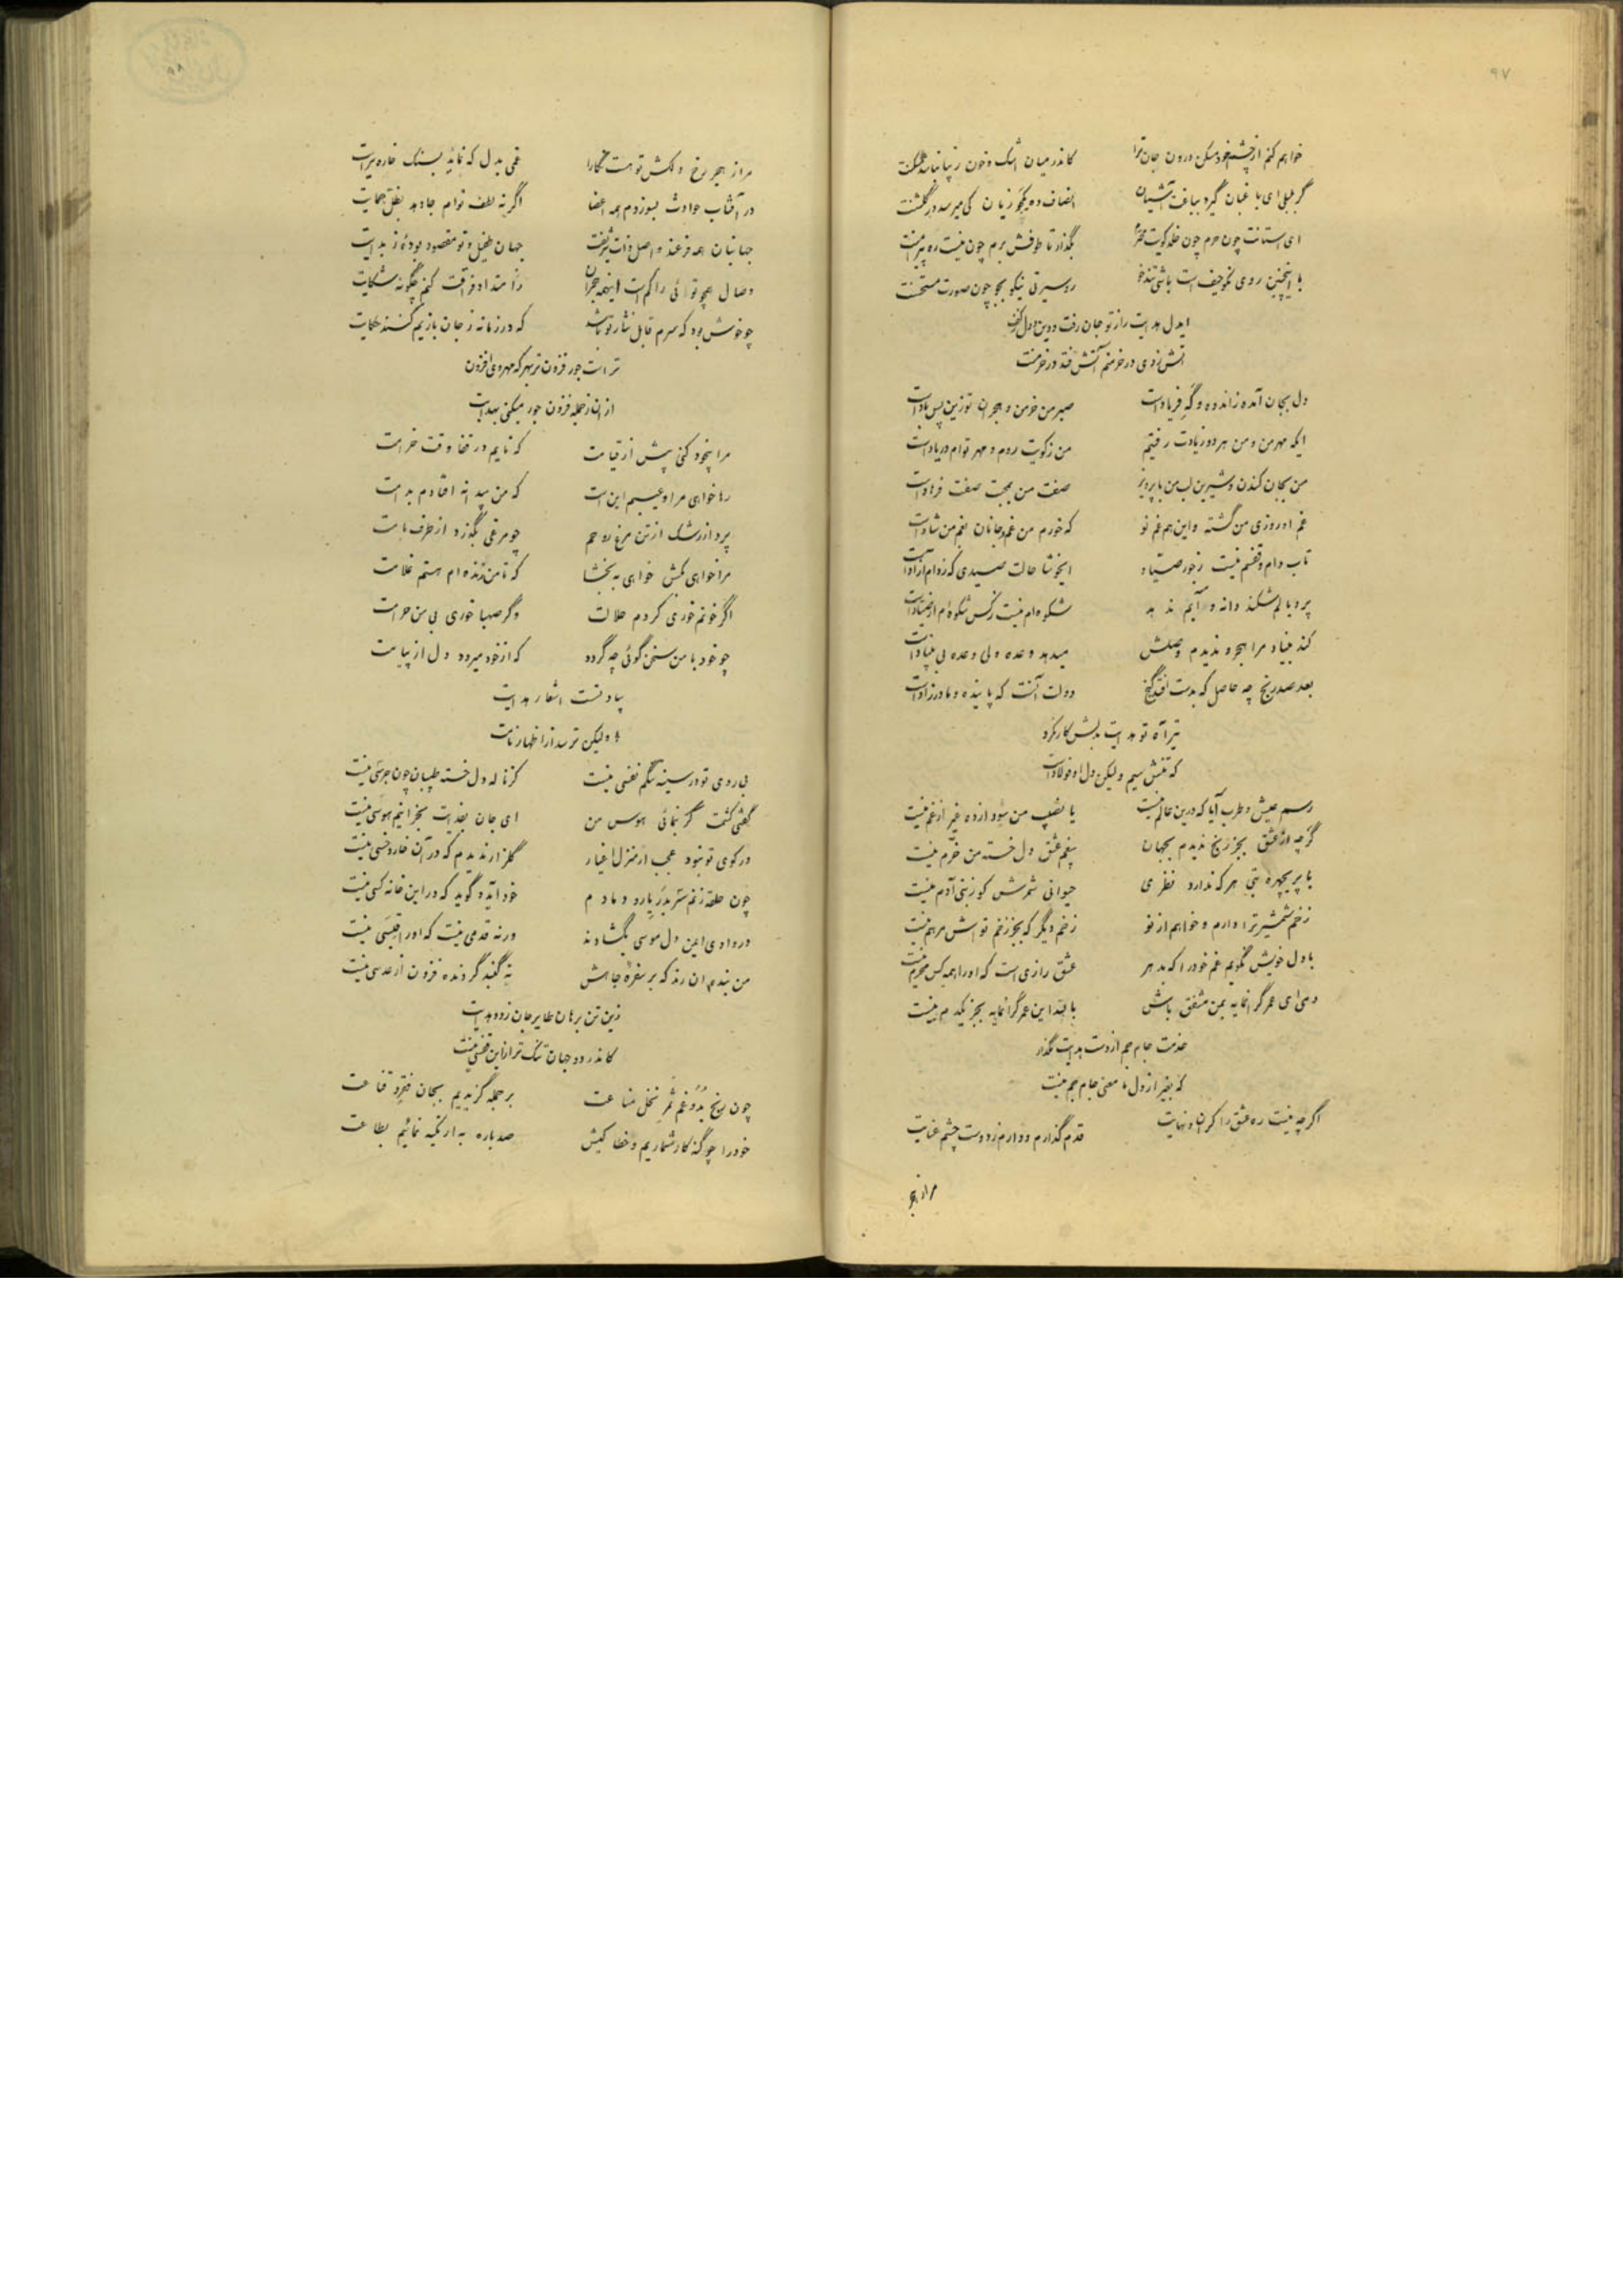 ۹۷
خواهم کنم از چشم خود مسکن درون جان ترا کاندر میان اشک و خون
گر بلبلی ای باغبان گیرد بباغت آشیان انصاف ده یکجو زیان کی میرسد در گلشنت
ای استانت چون حرم چون خلد کویت بگذار تا طوفش برم چون نیست ره
با اینچنین روی نکو حیف است باشی تندخو رو سیرتی نیکو بجو چون صورت مستحسنت
ایدل هدایت را ز تو جان رفت و دین و دل ز کف
آتش زدی در خرمنم آتش فتد در خرمنت
دل بجان آمده ز اندوه و گه فریاد است صبر من خرمن و هجران تو زین پس باد است
ایکه مهر من و من هر دو ز یادت رفتیم من ز کویت روم و مهر توام در یاد است
من بجان کندن و شیرین لب من با پرویز صفت من بمحبت صفت فرهاد است
غم او روزی من گشته و این هم غم نو که خورم من غم و جانان بغم من شاد است
تاب دام و قفسم نیست ز جور صیاد ایخوشا حالت صیدی که ز دام آزاد است
پر و بالم شکند دانه و آبم ندهد شکوه ام نیست ز کس شکوه ام از صیاد است
کند بنیاد مرا هجر و ندیدم وصلش میدهد وعده ولی وعده بی بنیاد است
بعد صد رنج چه حاصل که بدست افتد گنج دولت آنست که پاینده و مادرزاد است
تیر آه تو هدایت بدلش کار نکرد
که تنش سیم ولیکن دل او فولاد است
رسم عیش و طرب آیا که درین عالم نیست یا نصیب من شوریده غیر از غم نیست
گرچه از عشق بجز رنج ندیدم بجهان بیغم عشق دل خسته من خرم نیست
با پریچهره بتی هر که ندارد نظری حیوانی شمرش کو ز بنی آدم نیست
زخم شمشیر ترا دارم و خواهم از نو زخم دیگر که بجز زخم تواش مرهم نیست
با دل خویش نگویم غم خود را که بدهر عشق رازی است که او را همه کس محرم نیست
دمی ای عمر گرانمایه بمن مشفق باش با بقا این عمر گرانمایه بجز یکدم نیست
خدمت جام جم از دست هدایت مگذار
که بغیر از دل ما معنی جام جم نیست
اگرچه نیست ره عشق را کران و نهایت قدم گذارم و دارم ز دوست چشم عنایت
مرا ز هجر
۹۸
مرا ز هجر رخ دلکش تو هست نگارا غمی بدل که نمایه بسنگ خاره سرایت
در آفتاب حوادث بسوزدم همه اعضا اگر نه لطف توام جا دهد بظل حمایت
جهانیان همه فرعند و اصل ذات شریفت جهان طفیل و تو مقصود بوده ز بدایت
وصال همچو توئی را کم است اینهمه هجران ز امتداد فراقت کنم چگونه شکایت
چو خوش بود که سرم قابل نثار تو باشد که در زمانه ز جان بازیم کنند حکایت
تراست جور فزون تر بهر که مهر وی افزون
از آن ز جمله فزون جور میکنی بهدایت
مرا بیخود کنی پیش از قیامت که نایم در قفا وقت خرامت
رها خواهی مرا و عیبم این است که من بیدانه افتادم بدامت
پرد از رشک از تن مرغ روحم چو مرغی بگذرد از طرف بامت
مرا خواهی بکش خواهی ببخشا که تا من زنده ام هستم غلامت
اگر خونم خوری کردم حلالت وگر صهبا خوری بی من حرامت
چو خود با من سخن گوئی چه گردد که از خود میرود دل از پیامت
بیاد تست اشعار هدایت
ولیکن ترسد از اظهار نامت
بی روی تو در سینه تنگم نفسی نیست کز ناله دل خسته طپان چون جرسی نیست
گفتی کشمت گر بنمائی هوس من ای جان بفدایت بجز اینم هوسی نیست
در کوی تو نبود عجب ار منزل اغیار گلزار ندیدم که در آن خار و خسی نیست
چون حلقه زنم بر در یار و دمادم خود آید و گوید که در این خانه کسی نیست
در وادی ایمن دل موسی بگشادند ورنه قدمی نیست که او را قبسی نیست
من بنده آن رند که بر سفره جاهش نه گنبد گردنده فزون از عدسی نیست
زین تن برهان طایر جان زود هدایت
کاندر دو جهان تنگ تر از این قفسی نیست
چون رنج بد و غم ثمر نخل مناعت بر جمله گزیدیم بجان فقر و قناعت
خود را چو گنه کار شماریم و خطا کیش صد باره به از تکیه نمائیم بطاعت